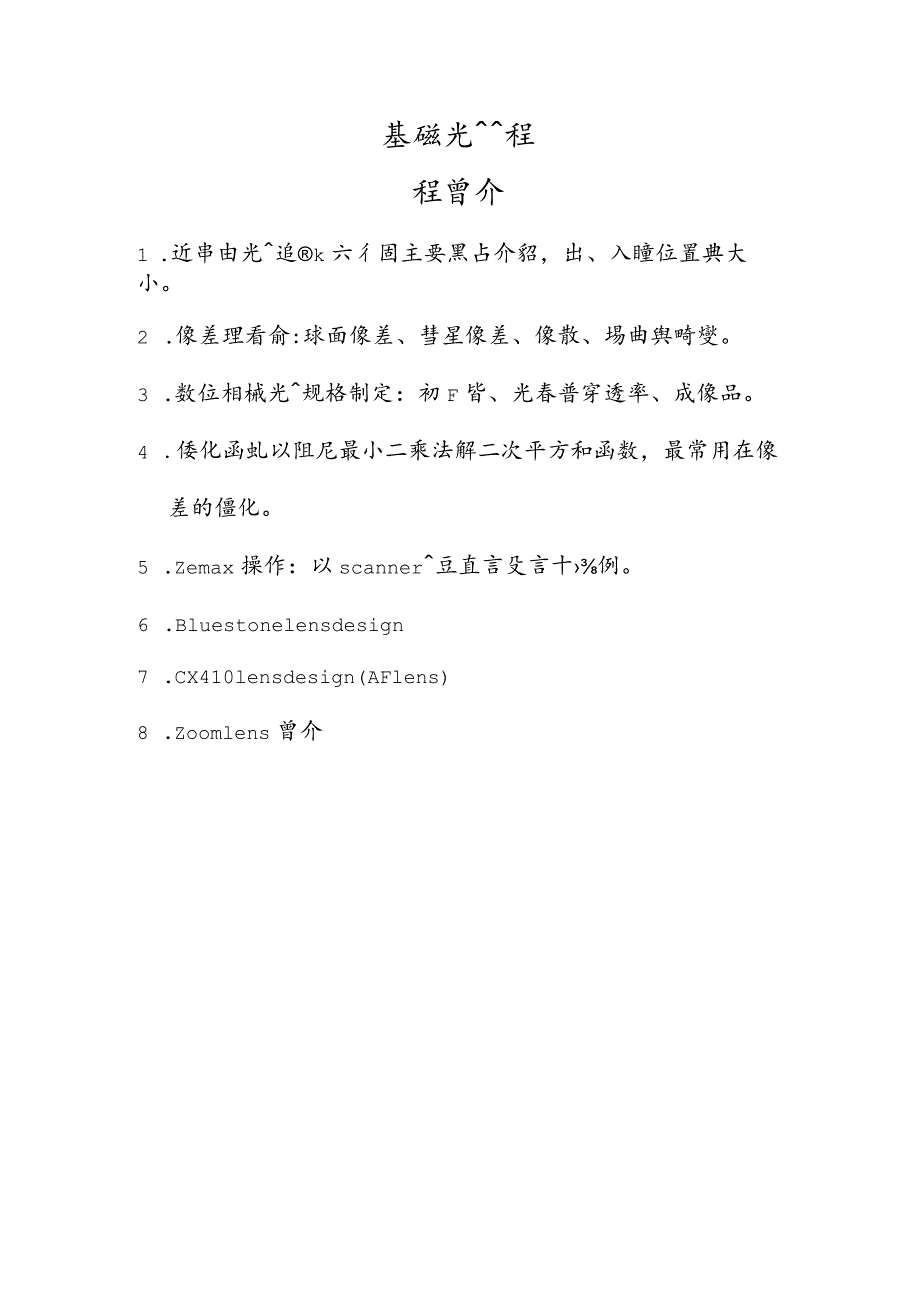 基磁光^^程
程曾介
1 .近串由光^追®k 六彳固主要黑占介貂，出、入瞳位置典大
小。
2 .像差理看俞:球面像差、彗星像差、像散、埸曲舆畸燮。
3 .数位相械光^规格制定：初 F 皆、光春普穿透率、成像品。
4 .倭化函虬以阻尼最小二乘法解二次平方和函数，最常用在像
差的僵化。
5 .Zemax 操作：以 scanner^豆直言殳言十›⅜例。
6 .Bluestonelensdesign
7 .CX410lensdesign(AFlens)
8 .Zoomlens 曾介